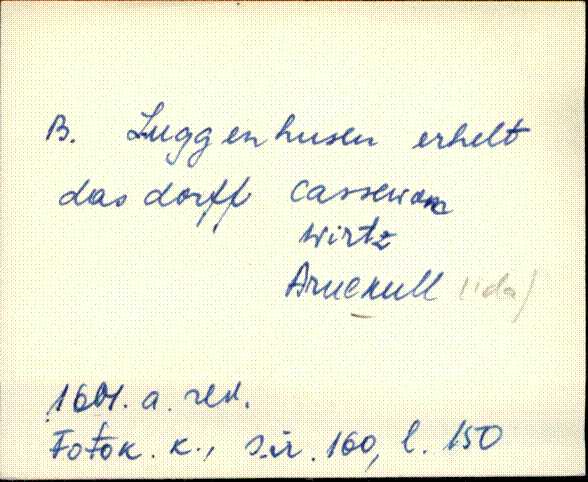 B. Luggenhusen erhelt
das dorff Cassewom
Wirtz
Aruekull
1601. a. rev.
Fotok. k., s.ü. 160, l. 150